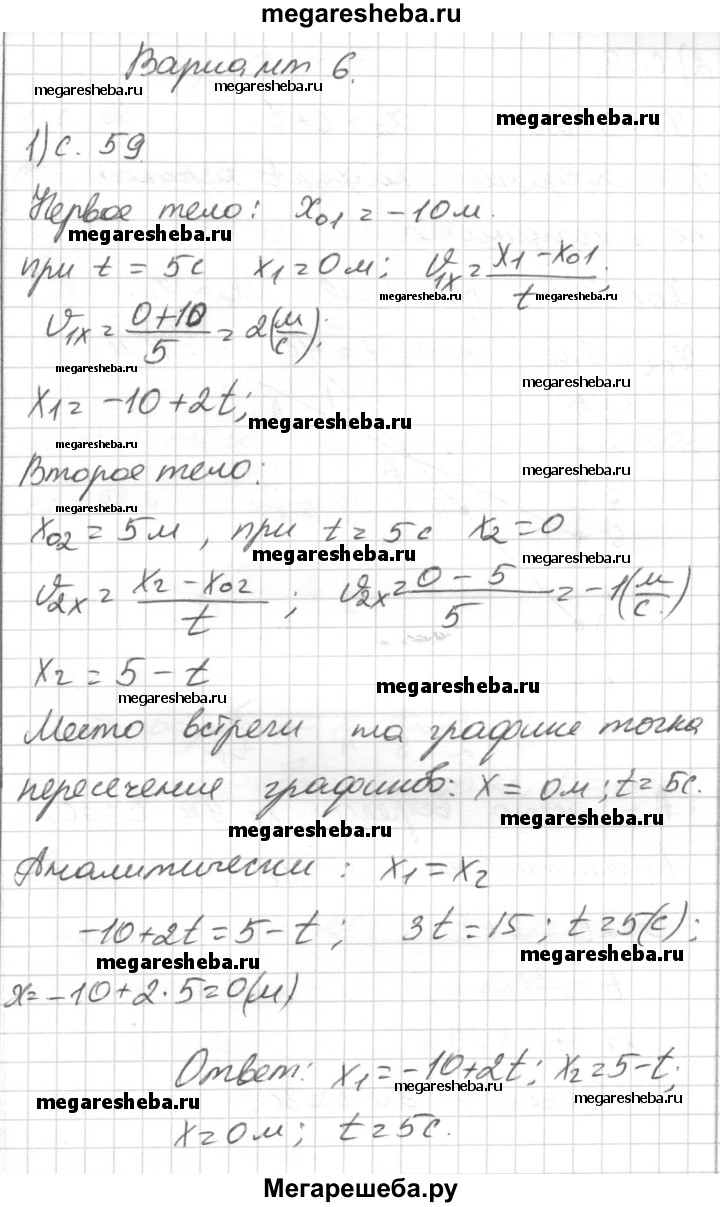 megaresheba.ru
Вариант 6.
megaresheba.ru megaresheba.ru
megaresheba.ru
1) с. 59
Первое тело: x₀₁ = -10 м.
megaresheba.ru megaresheba.ru
при t = 5с x₁ = 0 м; υ₁ₓ = (x₁ - x₀₁)/t;
megaresheba.ru megaresheba.ru
υ₁ₓ = (0+10)/5 = 2(м/с);
megaresheba.ru megaresheba.ru
x₁ = -10 + 2t;
megaresheba.ru
megaresheba.ru
Второе тело:
megaresheba.ru
megaresheba.ru
x₀₂ = 5 м, при t = 5 с x₂ = 0
megaresheba.ru megaresheba.ru
υ₂ₓ = (x₂ - x₀₂)/t; υ₂ₓ = (0 - 5)/5 = -1(м/с)
x₂ = 5 - t
megaresheba.ru megaresheba.ru
Место встречи на графике точка
пересечение графиков: x = 0м; t = 5с.
megaresheba.ru megaresheba.ru
Аналитически: x₁ = x₂
-10+2t = 5 - t; 3t = 15; t = 5(с);
megaresheba.ru megaresheba.ru
x = -10 + 2·5 = 0(м)
Ответ: x₁ = -10+2t; x₂ = 5-t;
megaresheba.ru megaresheba.ru megaresheba.ru
x = 0 м; t = 5с.
Мегарешеба.ру